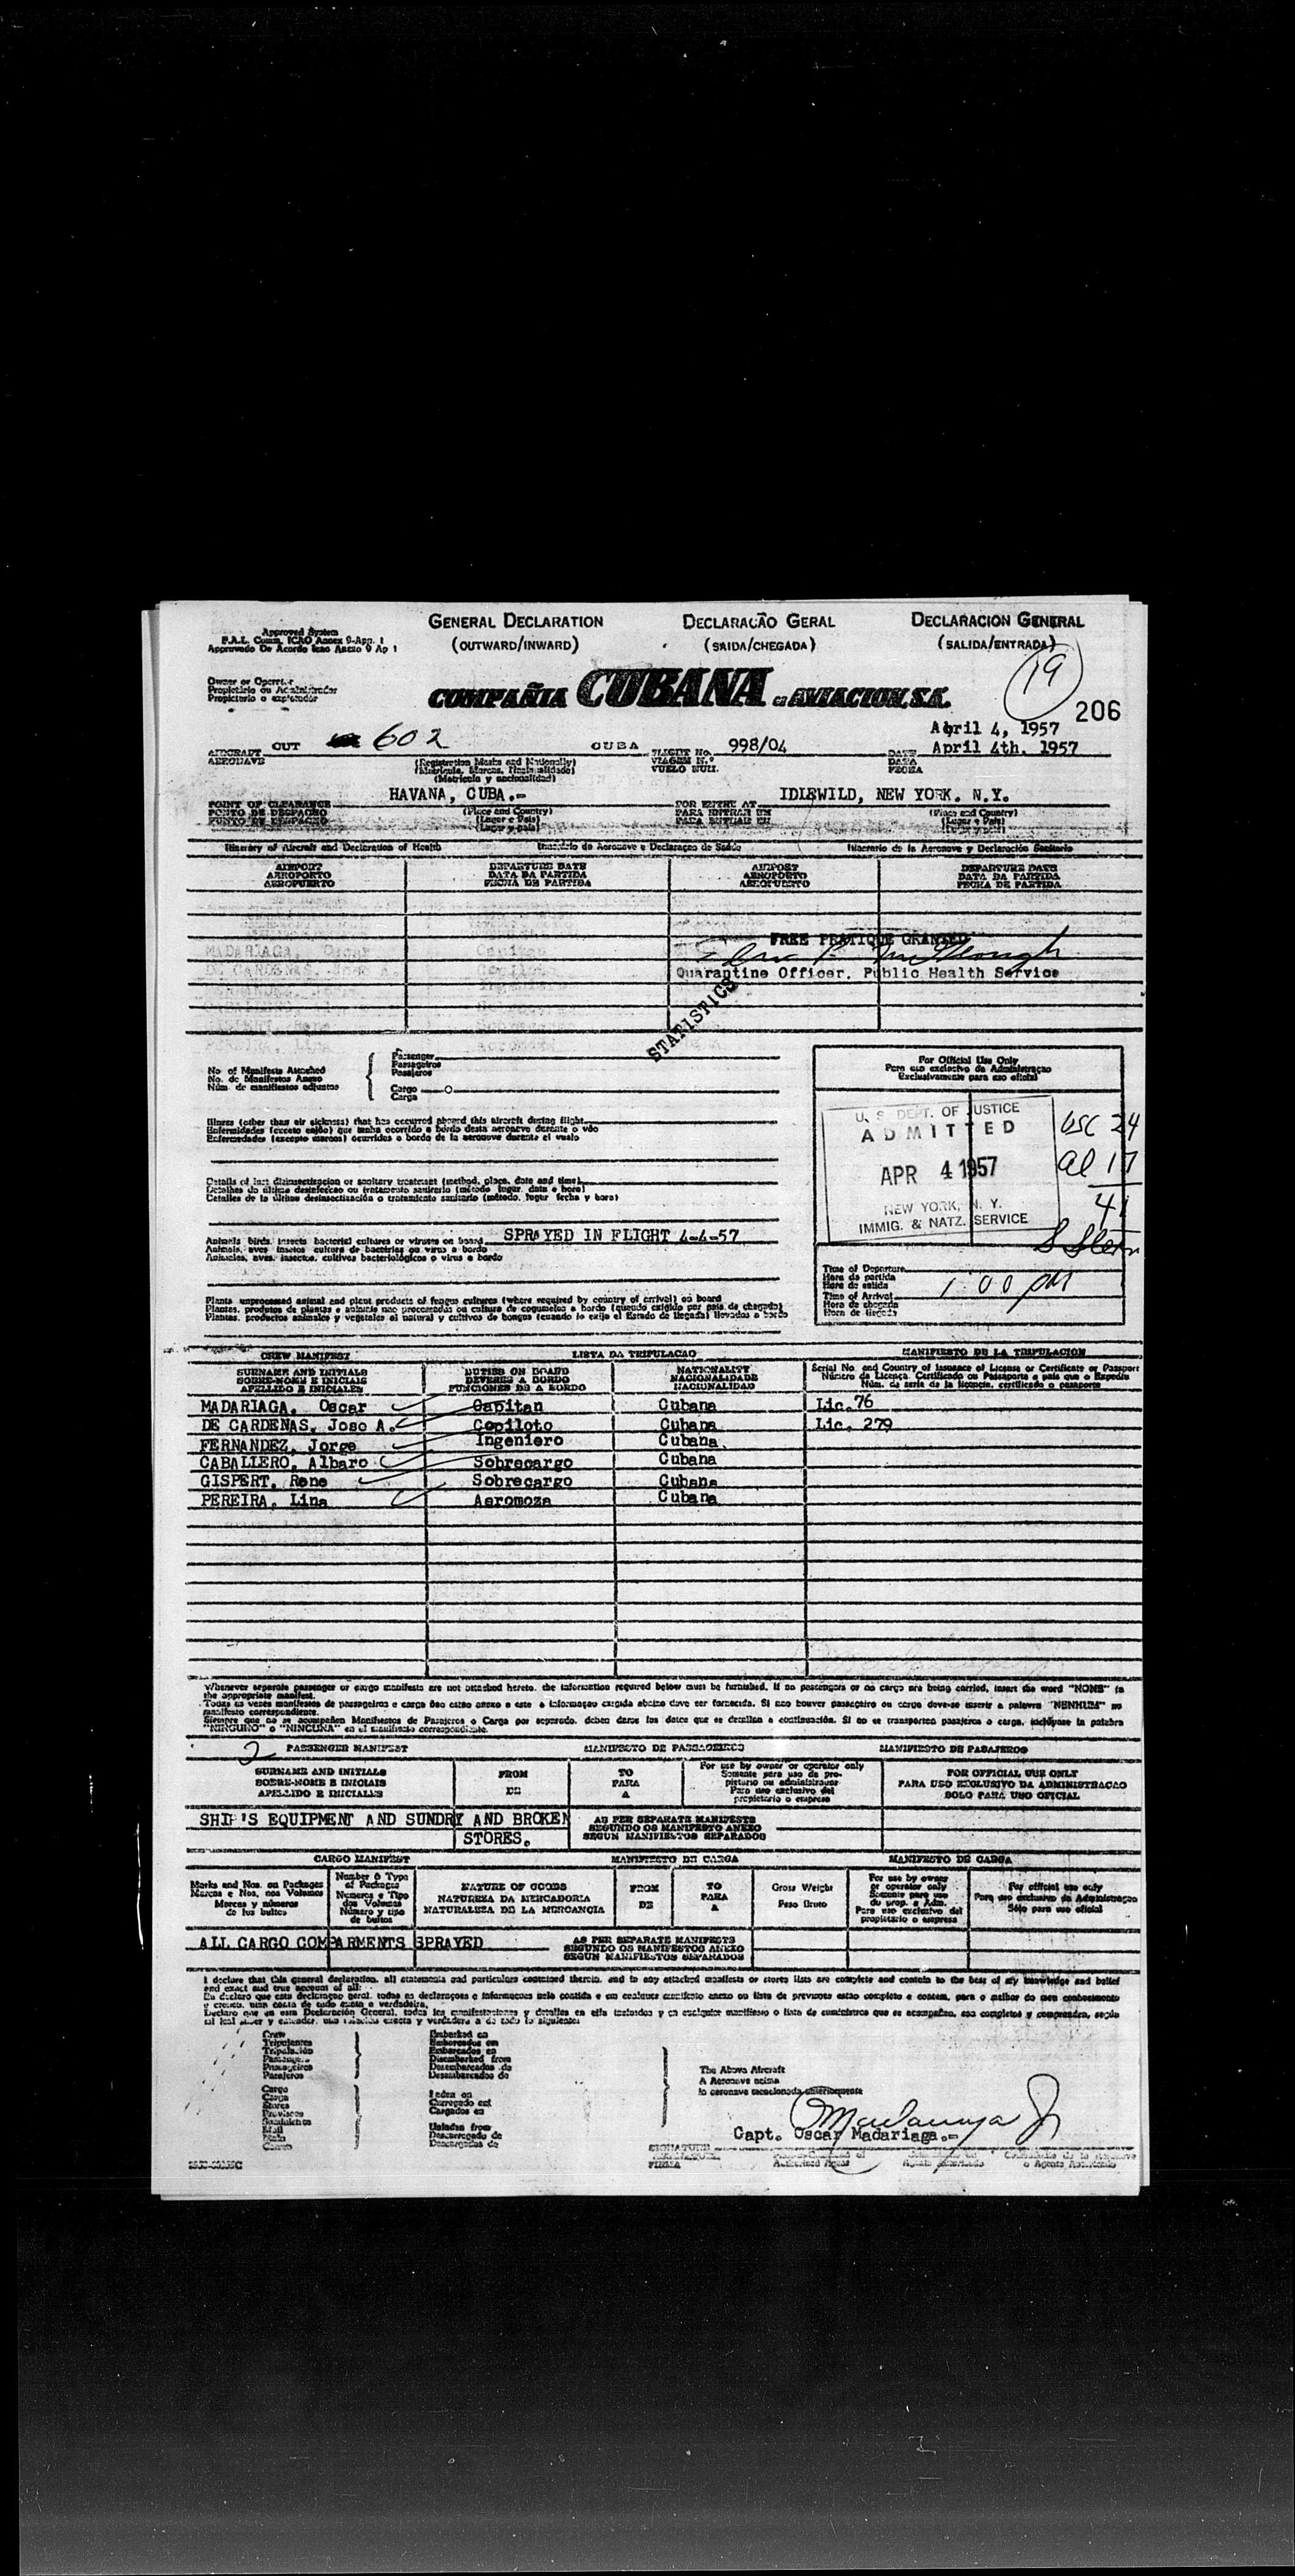 Approved System
F.A.L. Comm. ICAO Annex 9-App. 1
Approvado De Acordo Icao Anexo 9 Ap 1
GENERAL DECLARATION
(OUTWARD/INWARD)
DECLARAÇÃO GERAL
(SAIDA/CHEGADA)
DECLARACION GENERAL
(SALIDA/ENTRADA)
19
Owner or Operator
Propietário ou Administrador
Propietario o explotador
COMPAÑIA CUBANA de AVIACION, S.A.
206
April 4, 1957
AIRCRAFT CUT 602 CUBA FLIGHT No. 998/04 DATE April 4th. 1957
AERONAVE
(Registration Marks and Nationality)
(Matricula y nacionalidad)
VIAGEM N.º
VUELO NUM.
DATA
FECHA
POINT OF CLEARANCE HAVANA, CUBA.- FOR ENTRY AT IDLEWILD, NEW YORK. N.Y.
PONTO DE DESPACHO
PUNTO DE DESPACHO
(Place and Country)
(Lugar e Pais)
(Lugar y pais)
PARA ENTRAR EM
PARA ENTRAR EN
(Place and Country)
(Lugar e Pais)
(Lugar y pais)
Itinerary of Aircraft and Declaration of Health
Itinerário da Aeronave e Declaraçao de Saúde
Itinerario de la Aeronave y Declaración Sanitaria
AIRPORT
AEROPORTO
AEROPUERTO
DEPARTURE DATE
DATA DA PARTIDA
FECHA DE PARTIDA
AIRPORT
AEROPORTO
AEROPUERTO
DEPARTURE DATE
DATA DA PARTIDA
FECHA DE PARTIDA
FREE PRATIQUE GRANTED
Quarantine Officer, Public Health Service
STATISTICS
No of Manifests Attached
No. de Manifestos Anexo
Núm. de manifiestos adjuntos
Passenger
Passageiros
Pasajeros
Cargo O
Carga
For Official Use Only
Para uso exclusivo da Administraçao
Exclusivamente para uso oficial
U. S. DEPT. OF JUSTICE
ADMITTED
APR 4 1957
NEW YORK, N. Y.
IMMIG. & NATZ. SERVICE
USC 24
al 17
41
S Stern
Illness (other than air sickness) that has occurred aboard this aircraft during flight
Enfermidades (exceto enjôo) que tenha ocorrido a bordo desta aeronave durante o vôo
Enfermedades (excepto mareos) ocurridas a bordo de la aeronave durante el vuelo
Details of last disinsectization or sanitary treatment (method, place, date and time)
Detalhes da última desinfeccao ou tratamento sanitario (método, lugar, data e hora)
Detalles de la última desinsectización o tratamiento sanitario (método, lugar fecha y hora)
SPRAYED IN FLIGHT 4-4-57
Animals birds, insects bacterial cultures or viruses on board
Animais, aves insetos cultura de bactérias ou virus a bordo
Animales, aves, insectos, cultivos bacteriológicos o virus a bordo
Time of Departure
Hora da partida
Hora de salida
Time of Arrival 1:00 PM
Hora de chegada
Hora de llegada
Plants unprocessed animal and plant products of fungus cultures (where required by country of arrival) on board
Plantas, produtos de plantas e animais nao processadas ou cultura de cogumelos a bordo (quando exigido por pais de chegada)
Plantas, productos animales y vegetales al natural y cultivos de hongos (cuando lo exija el Estado de llegada) llevados a bordo
CREW MANIFEST
LISTA DA TRIPULACAO
MANIFIESTO DE LA TRIPULACION
SURNAME AND INITIALS
SOBRE-NOME E INICIAIS
APELLIDO E INICIALES
DUTIES ON BOARD
DEVERES A BORDO
FUNCIONES DE A BORDO
NATIONALITY
NACIONALIDADE
NACIONALIDAD
Serial No. and Country of Issuance of License or Certificate or Passport
Número da Licença, Certificado ou Passaporte e pais que o Expediu
Núm. de serie de la licencia, certificado o pasaporte
MADARIAGA, Oscar Capitan Cubana Lic. 76
DE CARDENAS, Jose A. Copiloto Cubana Lic. 279
FERNANDEZ, Jorge Ingeniero Cubana
CABALLERO, Albaro Sobrecargo Cubana
GISPERT, Rene Sobrecargo Cubana
PEREIRA, Lina Aeromoza Cubana
Whenever separate passenger or cargo manifests are not attached hereto, the information required below must be furnished. If no passengers or no cargo are being carried, insert the word "NONE" in
the appropriate manifest.
Todas as vezes manifestos de passageiros e carga nao estao anexo a este a informaçao exigida abaixo deve ser fornecida. Si nao houver passageiro ou carga deve-se inserir a palavra "NENHUM" no
manifesto correspondiente.
Siempre que no se acompañen Manifiestos de Pasajeros o Carga por separado, deben darse los datos que se detallan a continuación. Si no se transporten pasajeros o carga, inclúyase la palabra
"NINGUNO" o "NINGUNA" en el manifiesto correspondiente.
2
PASSENGER MANIFEST
MANIFESTO DE PASSAGEIROS
MANIFIESTO DE PASAJEROS
SURNAME AND INITIALS
SOBRE-NOME E INICIAIS
APELLIDO E INICIALES
FROM
DE
TO
PARA
A
For use by owner or operator only
Somente para uso de pro-
pietario ou administrador
Para uso exclusivo del
propietario o empresa
FOR OFFICIAL USE ONLY
PARA USO EXCLUSIVO DA ADMINISTRACAO
SOLO PARA USO OFICIAL
SHIP'S EQUIPMENT AND SUNDRY AND BROKEN
STORES.
AS PER SEPARATE MANIFESTS
SEGUNDO OS MANIFESTO ANEXO
SEGUN MANIFIESTOS SEPARADOS
CARGO MANIFEST
MANIFIESTO DE CARGA
MANIFIESTO DE CARGA
Marks and Nos. on Packages
Marcas e Nos. nos Volumes
Marcas y números
de los bultos
Number & Type
of Packages
Numeros e Tipo
dos Volumes
Número y tipo
de bultos
NATURE OF GOODS
NATUREZA DA MERCADORIA
NATURALEZA DE LA MERCANCIA
FROM
DE
TO
PARA
A
Gross Weight
Peso Bruto
For use by owner
or operator only
Somente para uso
do prop. o Adm.
Para uso exclusivo del
propietario o empresa
For official use only
Para uso exclusivo da Administraçao
Sólo para uso oficial
ALL CARGO COMPARMENTS SPRAYED
AS PER SEPARATE MANIFESTS
SEGUNDO OS MANIFESTOO ANEXO
SEGUN MANIFIESTOS SEPARADOS
I declare that this general declaration, all statements and particulars contained therein, and in any attached manifests or stores lists are complete and contain to the best of my knowledge and belief
and exact and true account of all:
Crew
Tripulantes
Tripulación
Pasajeros
Cargo
Carga
Stores
Embarked on
Embarcados en
Disembarked from
Desembarcados de
Desembarcados de
Laden on
Carregado em
Cargados en
Unladen from
Descarregado de
Descargados de
The Above Aircraft
A Aeronave acima
la aeronave mencionada anteriormente
Madariaga Jr
Capt. Oscar Madariaga.-
SIGNATURE
FIRMA
Authorized Agent
o Agente Autorizado